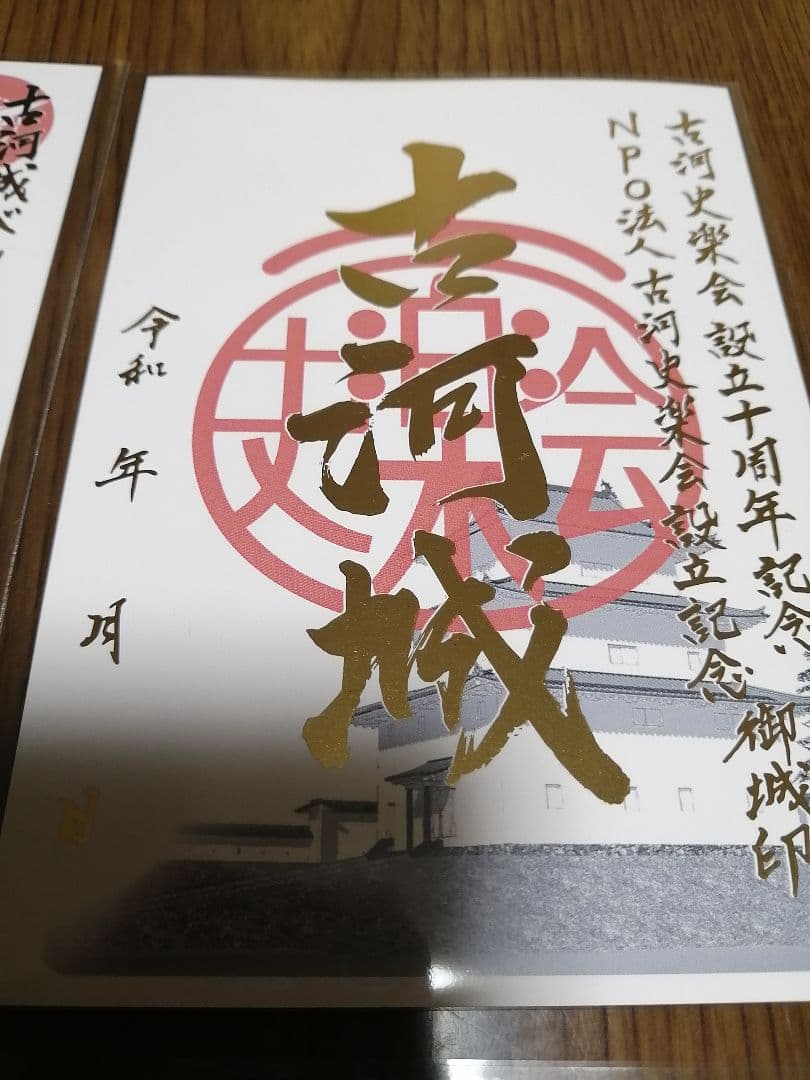 古河史楽会 設立十周年記念 御城印
NPO法人古河史楽会設立記念
古河城
古河史楽会
令和 年 月 日
古河城